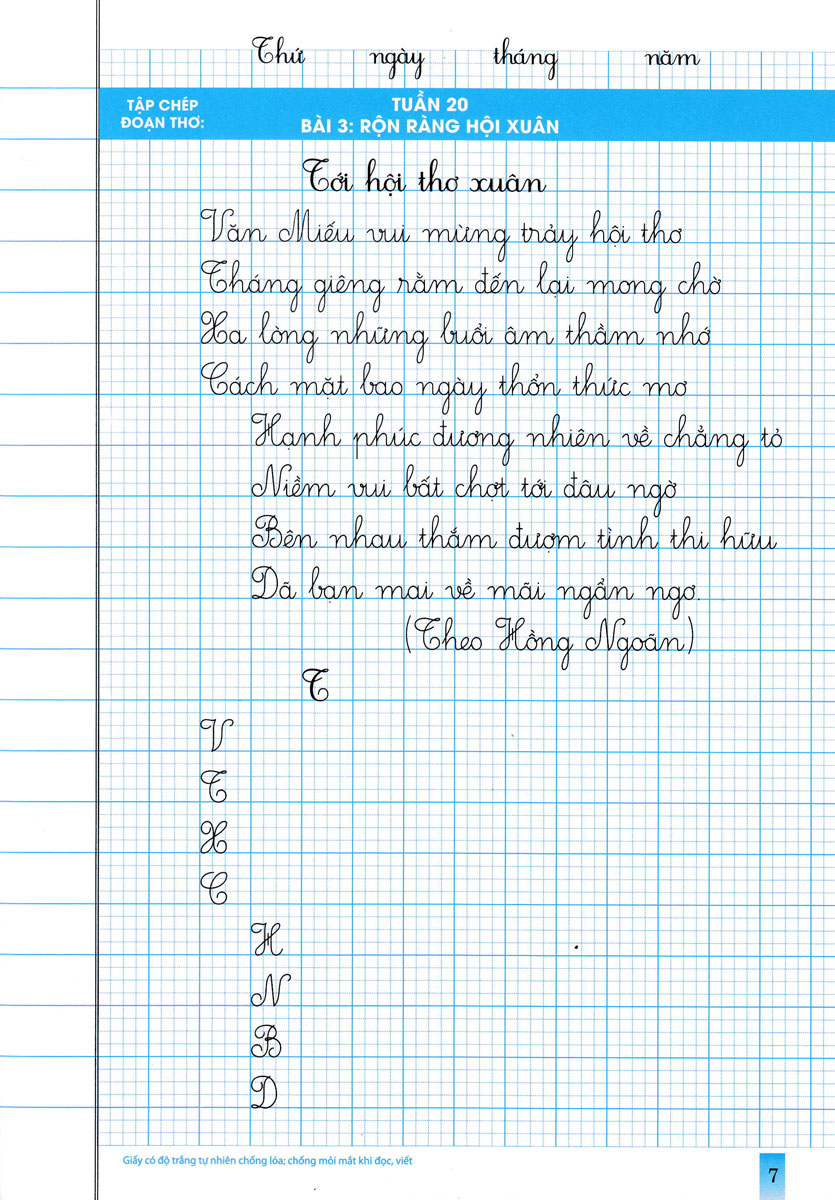 Thứ ngày tháng năm
TẬP CHÉP
ĐOẠN THƠ:
TUẦN 20
BÀI 3: RỘN RÀNG HỘI XUÂN
Tới hội thơ xuân
Văn Miếu vui mừng trảy hội thơ
Tháng giêng rằm đến lại mong chờ
Xa lòng những buổi âm thầm nhớ
Cách mặt bao ngày thổn thức mơ
Hạnh phúc đương nhiên về chẳng tỏ
Niềm vui bất chợt tới đâu ngờ
Bên nhau thắm đượm tình thi hữu
Dã bạn mai về mãi ngẩn ngơ.
(Theo Hồng Ngoãn)
T
V
T
X
C
H
N
B
D
Giấy có độ trắng tự nhiên chống lóa; chống mỏi mắt khi đọc, viết
7